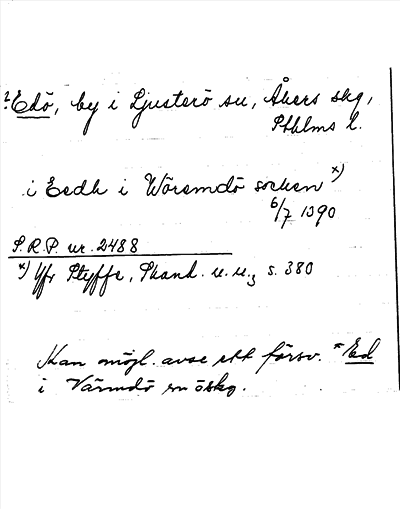 ? Edö, by i Ljusterö sn, Åkers skg,
Sthlms l.
i Eedh i Wäremdö sochen x)
6/7 1390
S.R.P. nr. 2488
x) Jfr Styffe, Skand. u. u., s. 380
Kan möjl. avse ett försv. *Ed
i Värmdö sn ö skg.